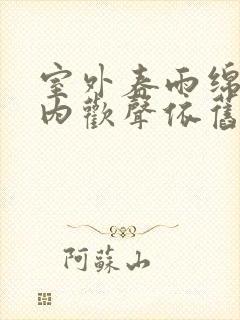 室外春雨綿
內歡聲依舊
阿蘇山